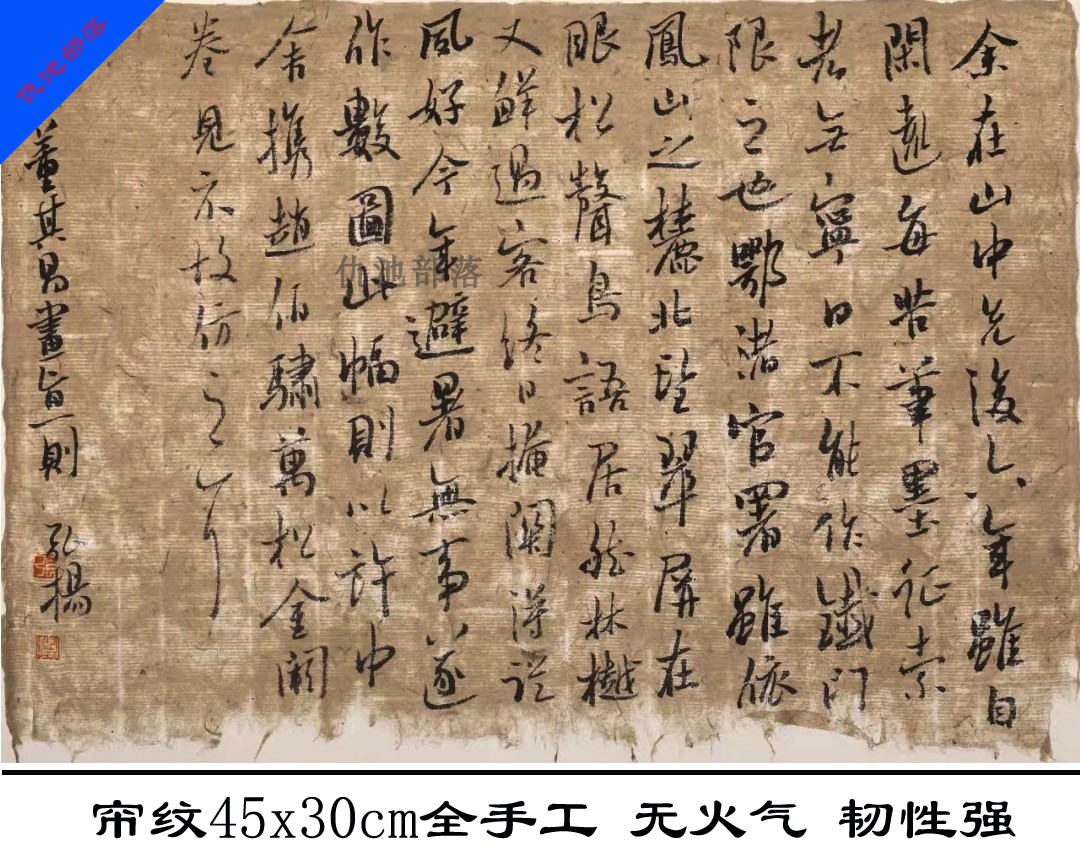 仇池部落
余在山中先後六年雖自
閑遠每苦筆墨征索
者無寧日不能作鐵門
限之也鄂渚官署雖依
鳳山之麓北望翠屏在
眼松聲鳥語居然林樾
又鮮過客終日掩關得從
夙好今年避暑無事遂
作數圖此幅則以許中
舍攜趙伯驌萬松金闕
卷見示故仿之耳
董其昌畫旨一則 弘揚
仇池部落
帘纹45x30cm全手工 无火气 韧性强